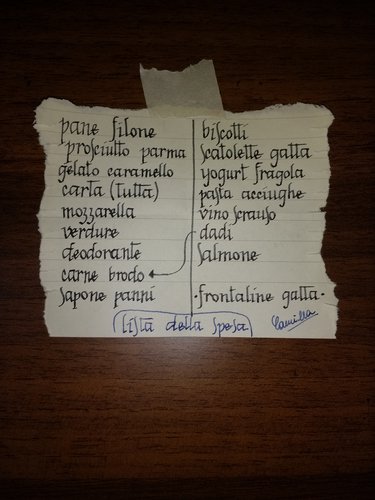 pane filone
prosciutto parma
gelato caramello
carta (tutta)
mozzarella
verdure
deodorante
carne brodo
sapone panni
biscotti
scatolette gatta
yogurt fragola
pasta acciughe
vino scrauso
dadi
salmone
·frontaline gatta·
lista della spesa
Camilla